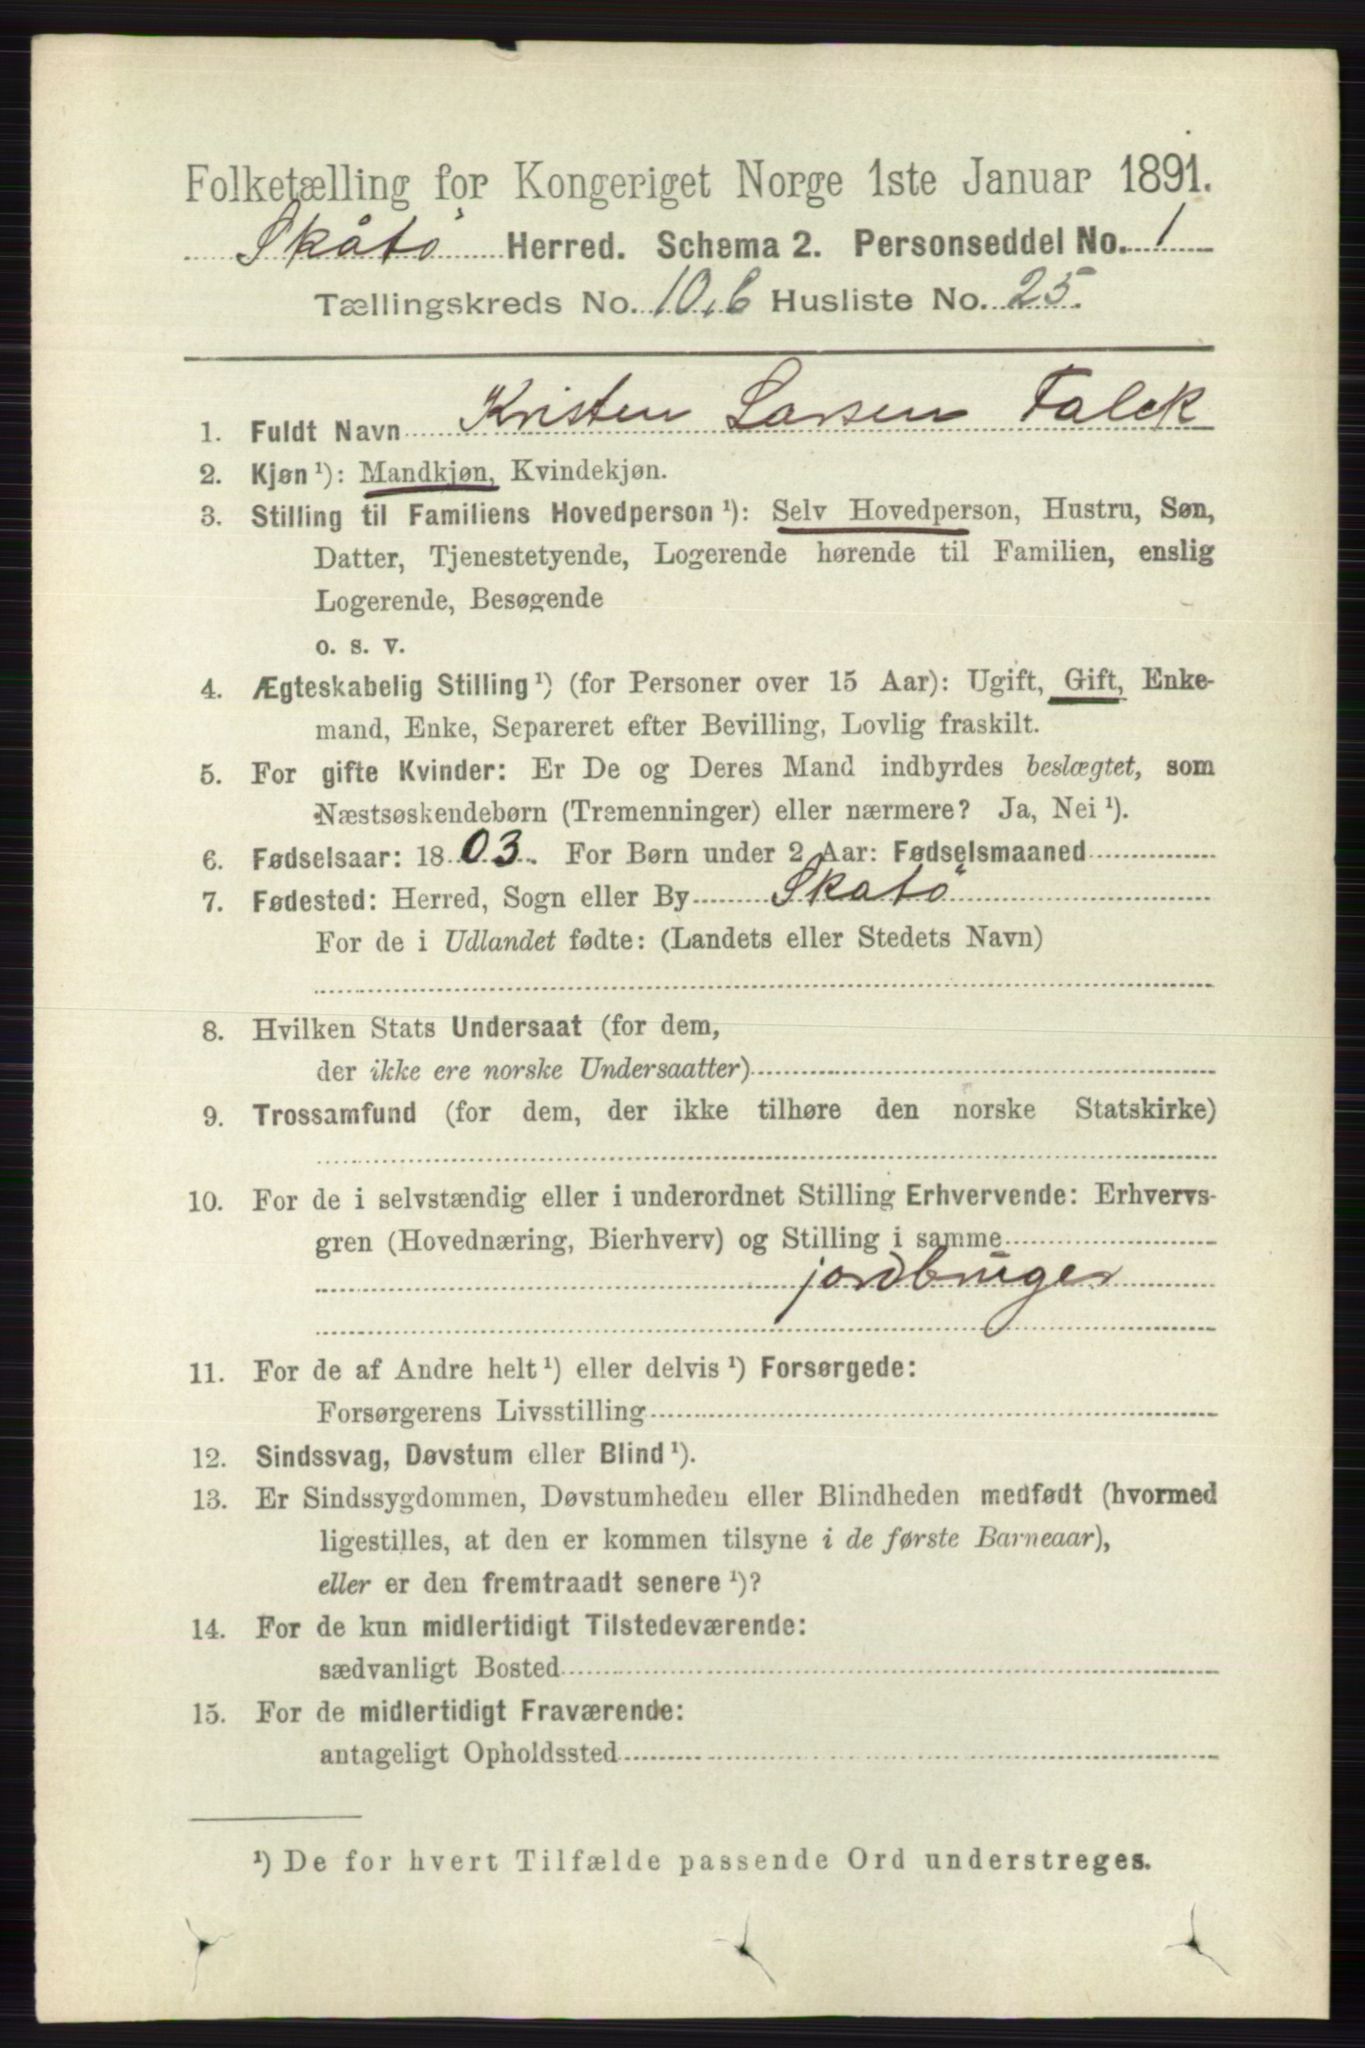 Folketælling for Kongeriget Norge 1ste Januar 1891.
Skåtö Herred. Schema 2. Personseddel No. 1
Tællingskreds No. 10,6 Husliste No. 25.
1. Fuldt Navn Kristen Larsen Falck
2. Kjøn ¹): Mandkjøn, Kvindekjøn.
3. Stilling til Familiens Hovedperson ¹): Selv Hovedperson, Hustru, Søn,
Datter, Tjenestetyende, Logerende hørende til Familien, enslig
Logerende, Besøgende
o. s. v.
4. Ægteskabelig Stilling ¹) (for Personer over 15 Aar): Ugift, Gift, Enke-
mand, Enke, Separeret efter Bevilling, Lovlig fraskilt.
5. For gifte Kvinder: Er De og Deres Mand indbyrdes beslægtet, som
Næstsøskendebørn (Tremenninger) eller nærmere? Ja, Nei ¹).
6. Fødselsaar: 1803. For Børn under 2 Aar: Fødselsmaaned
7. Fødested: Herred, Sogn eller By Skatö
For de i Udlandet fødte: (Landets eller Stedets Navn)
8. Hvilken Stats Undersaat (for dem,
der ikke ere norske Undersaatter)
9. Trossamfund (for dem, der ikke tilhøre den norske Statskirke)
10. For de i selvstændig eller i underordnet Stilling Erhvervende: Erhvervs-
gren (Hovednæring, Bierhverv) og Stilling i samme
jordbruger
11. For de af Andre helt ¹) eller delvis ¹) Forsørgede:
Forsørgerens Livsstilling
12. Sindssvag, Døvstum eller Blind ¹).
13. Er Sindssygdommen, Døvstumheden eller Blindheden medfødt (hvormed
ligestilles, at den er kommen tilsyne i de første Barneaar),
eller er den fremtraadt senere ¹)?
14. For de kun midlertidigt Tilstedeværende:
sædvanligt Bosted
15. For de midlertidigt Fraværende:
antageligt Opholdssted
¹) De for hvert Tilfælde passende Ord understreges.